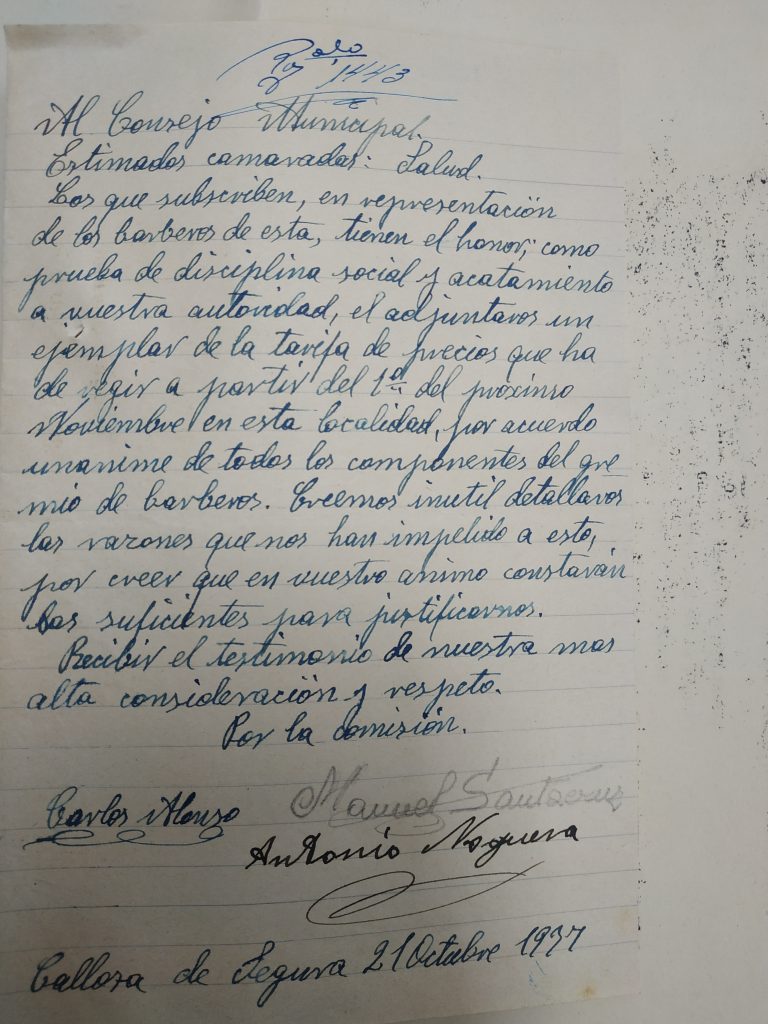 1443
Al Consejo Municipal.
Estimados camaradas: Salud.
Los que subscriben, en representación
de los barberos de esta, tienen el honor, como
prueba de disciplina social y acatamiento
a vuestra autoridad, el adjuntaros un
ejemplar de la tarifa de precios que ha
de regir a partir del 1º del próximo
Noviembre en esta localidad, por acuerdo
unanime de todos los componentes del gre
mio de barberos. Creemos inutil detallaros
las razones que nos han impelido a esto,
por creer que en vuestro animo constarán
las suficientes para justificarnos.
Recibir el testimonio de nuestra mas
alta consideración y respeto.
Por la comisión.
Carlos Alonso Manuel Santacruz
Antonio Noguera
Callosa de Segura 21 Octubre 1937